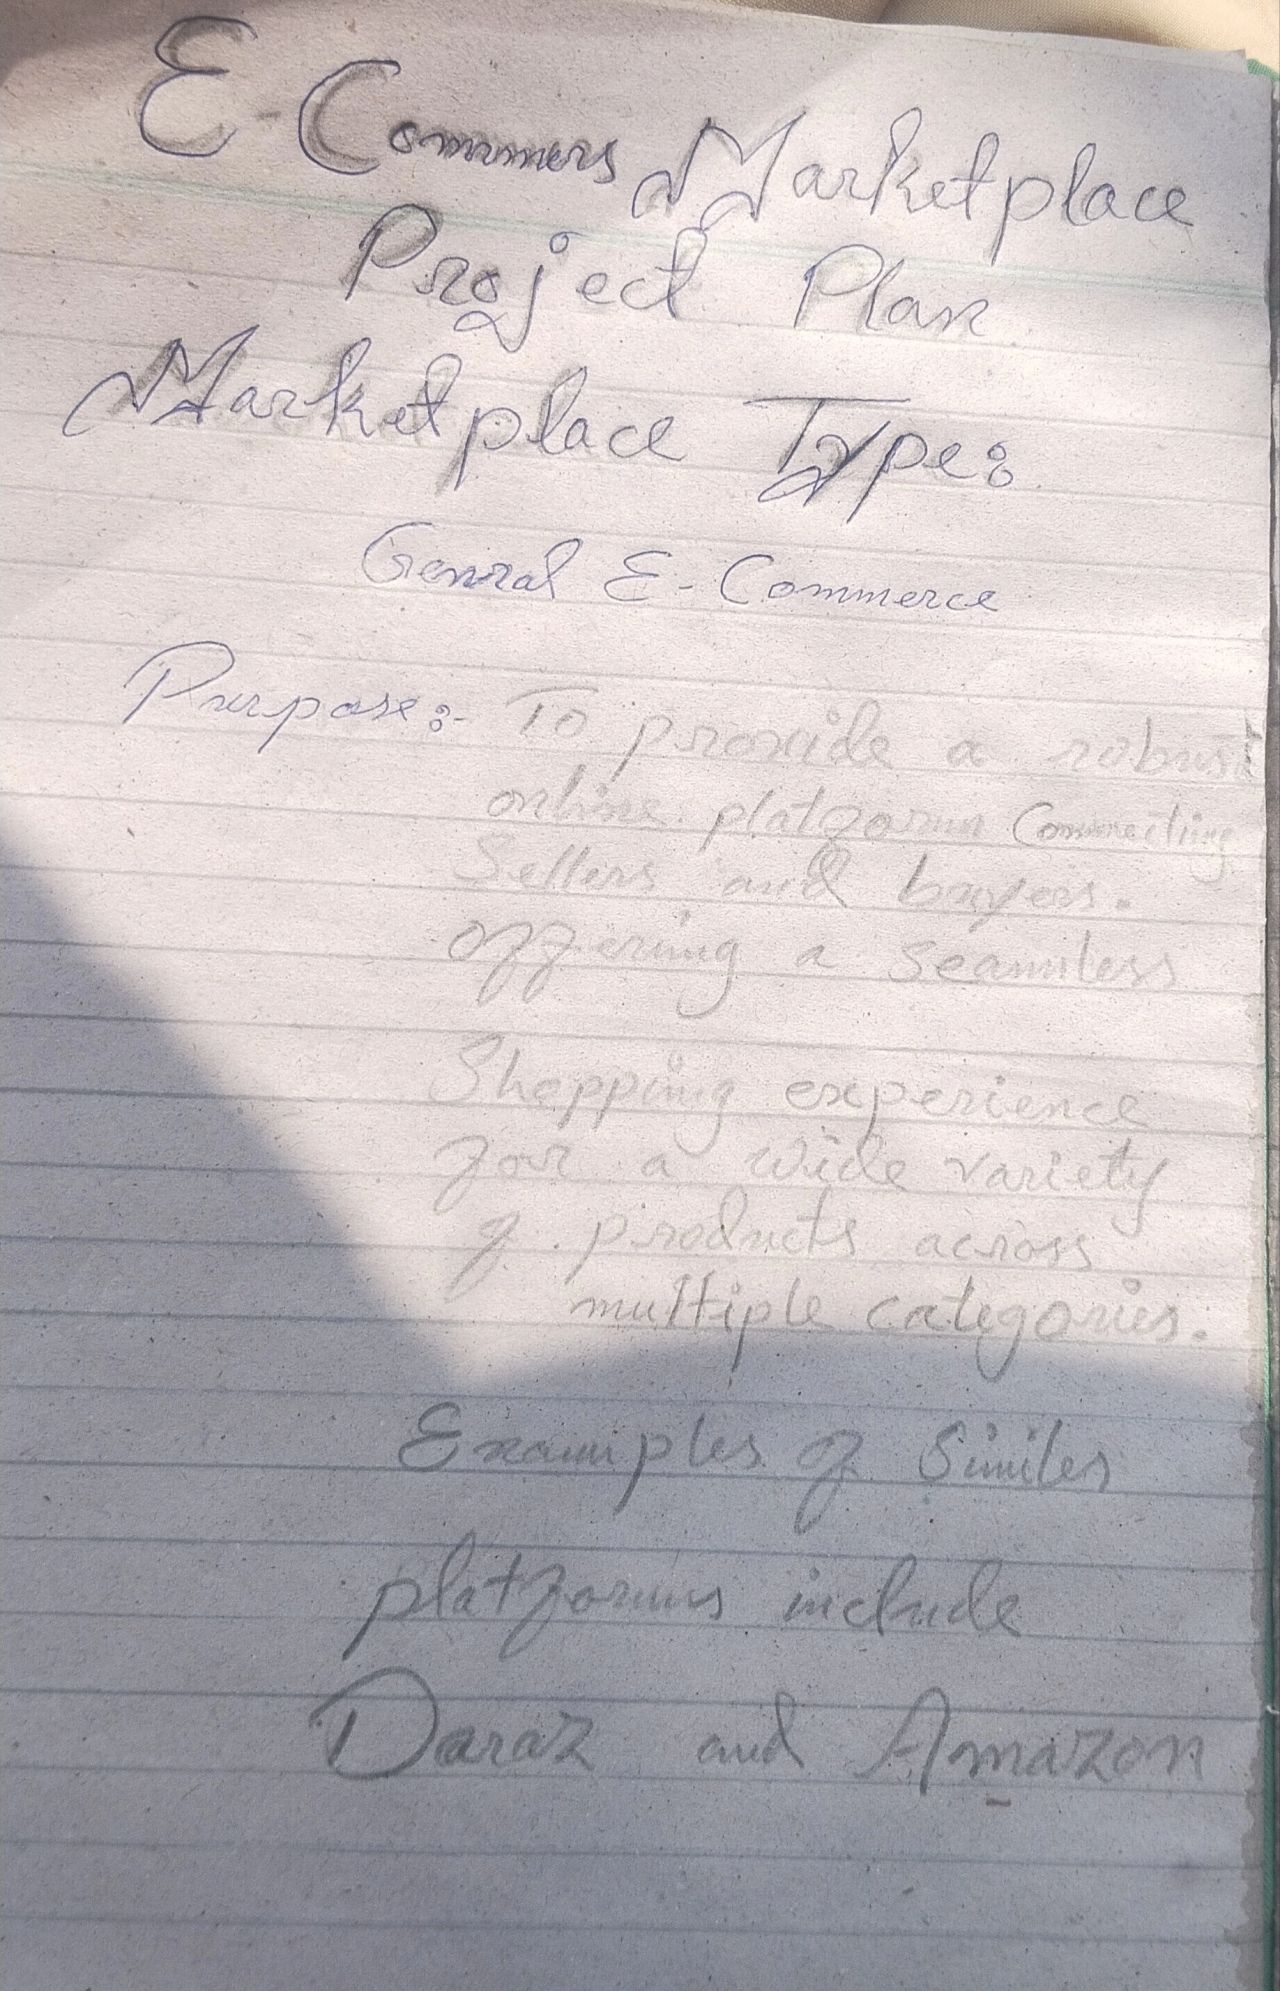 E-Commers Marketplace
Project Plan
Marketplace Type:
General E-Commerce
Purpose:- To provide a robust
online platform Connecting
Sellers and buyers.
offering a seamless
Shopping experience
for a wide variety
of products across
multiple categories.
Examples of Similer
platforms include
Daraz and Amazon